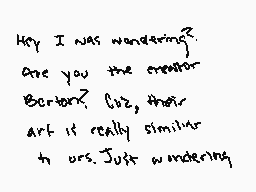 Hey I was wondering?
Are you the creator
Berton? Cuz, their
art is really similiar
to urs. Just wondering